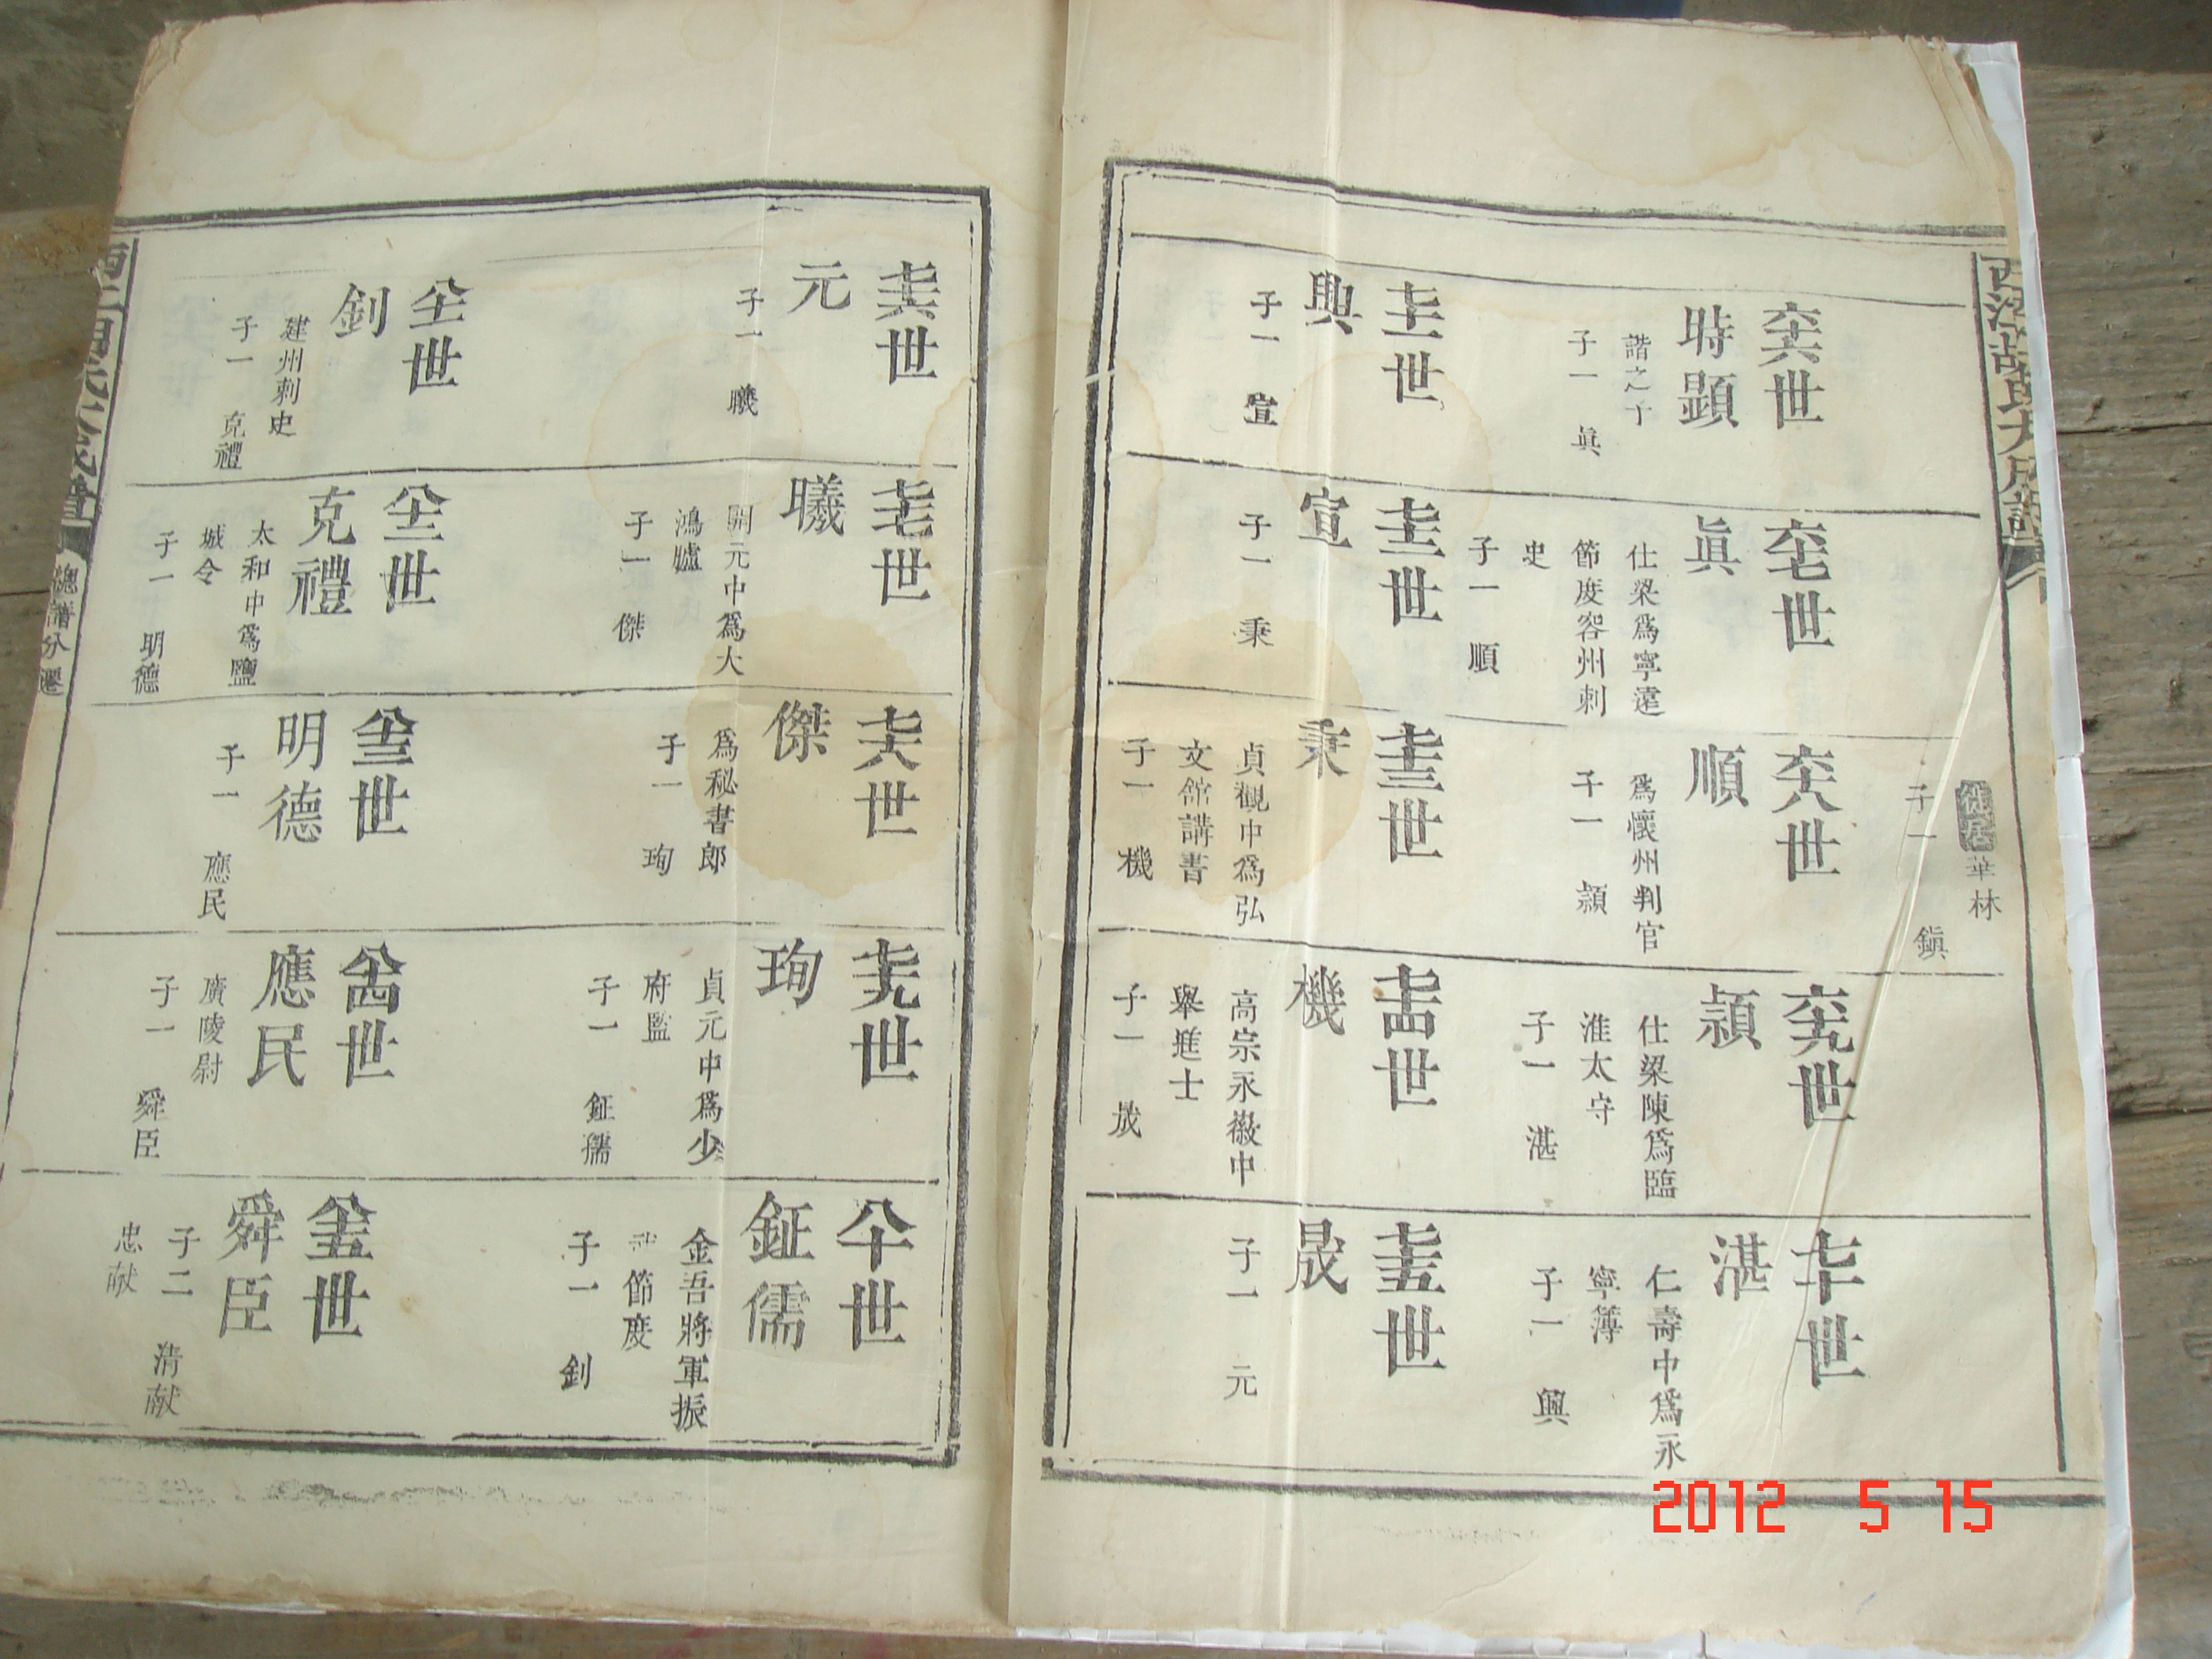 西江胡氏大成譜
徙居華林
子一 鎮
六十六世
時顕
諧之子
子一 眞
六十七世
眞
仕梁爲寧遠
節度容州刺
史
子一 順
六十八世
順
爲懷州判官
子一 頴
六十九世
頴
仕梁陳爲臨
淮太守
子一 湛
七十世
湛
仁壽中爲永
寧簿
子一 興
七十一世
興
子一 宣
七十二世
宣
子一 秉
七十三世
秉
貞觀中爲弘
文館講書
子一 機
七十四世
機
高宗永徽中
舉進士
子一 晟
七十五世
晟
子一 元
七十六世
元
子一 曦
七十七世
曦
開元中爲大
鴻臚
子一 傑
七十八世
傑
爲秘書郎
子一 珣
七十九世
珣
貞元中爲少
府監
子一 鉦儒
八十世
鉦儒
金吾將軍振
武節度
子一 釗
八十一世
釗
建州刺史
子一 克禮
八十二世
克禮
太和中爲鹽
城令
子一 明德
八十三世
明德
子一 應民
八十四世
應民
廣陵尉
子一 舜臣
八十五世
舜臣
子二 清献
忠献
總譜分遷
2012 5 15